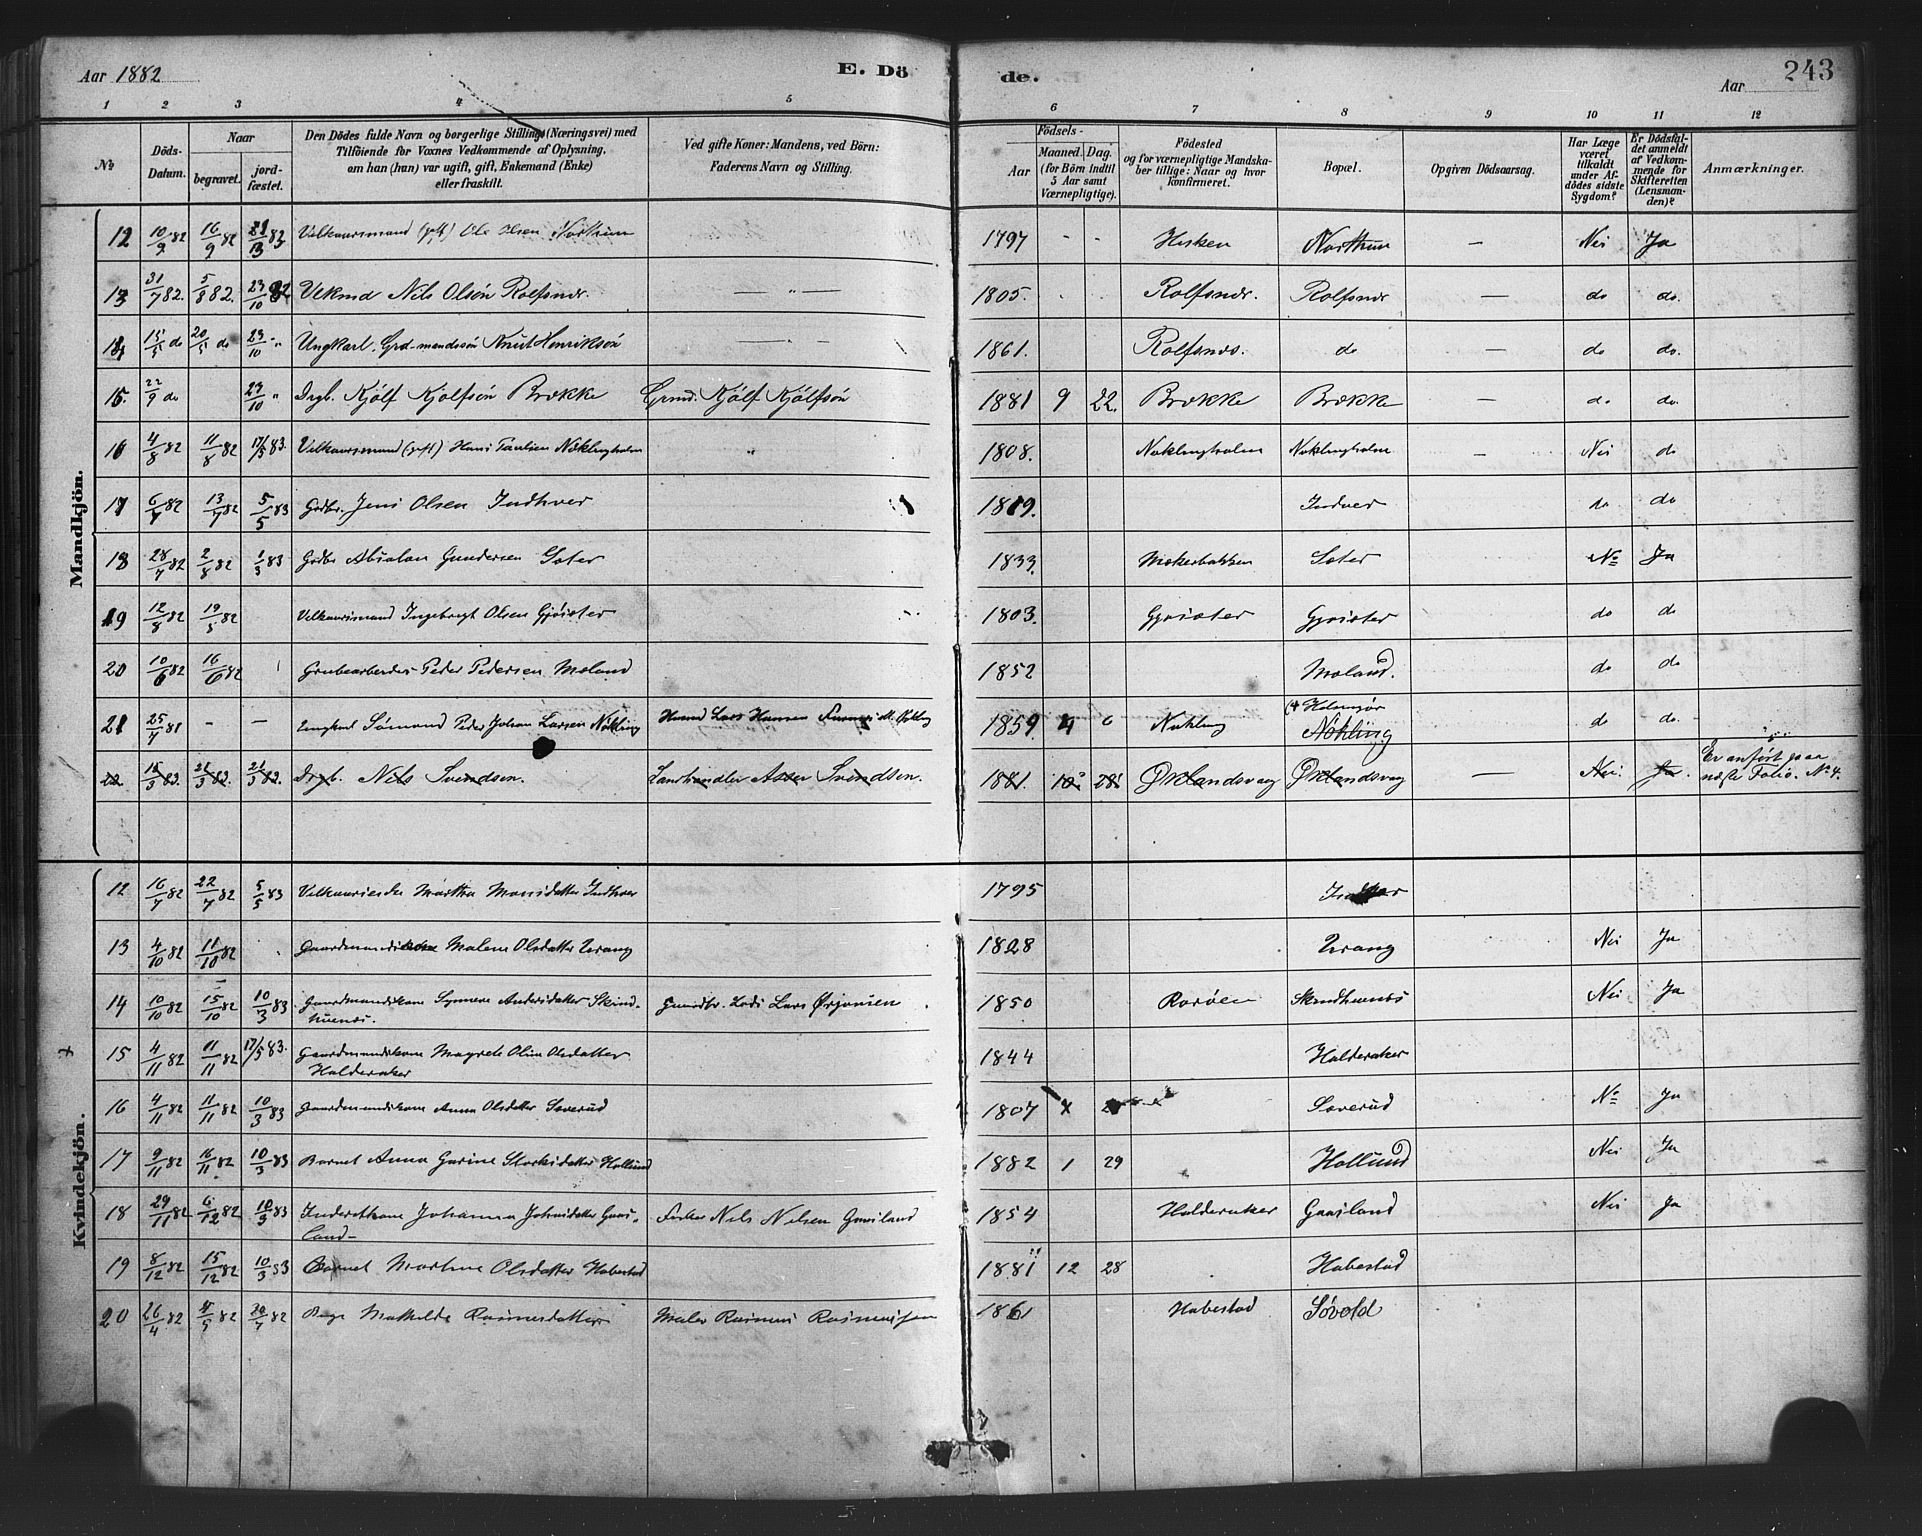 Aar 1882
E. Dö
de.
243
Aar
1 2 3 4 5 6 7 8 9 10 11 12
No
Döds-Datum.
Naar
begravet.
jord-fæstet.
Den Dödes fulde Navn og borgerlige Stilling (Næringsvei) med
Tilföiende for Voxnes Vedkommende af Oplysning,
om han (han) var ugift, gift, Enkemand (Enke)
eller fraskilt.
Ved gifte Koner: Mandens, ved Börn:
Faderens Navn og Stilling.
Födsels-
Aar
Maaned. Dag.
(for Börn indtil
5 Aar samt
Værnepligtige).
Födested
og for værnepligtige Mandska-
ber tillige: Naar og hvor
konfirmeret.
Bopæl.
Opgiven Dödsaarsag.
Har Læge
været
tilkaldt
under Af-
dödes sidste
Sygdom?
Er Dödsfal-
det anmeldt
af Vedkom-
mende for
Skifteretten
(Lensman-
den)?
Anmærkninger.
Mandkjön.
12 10/9 82 16/9 82 Ole Olsen 1797 - - Nei Ja
13 31/7 82. 5/8 82. 23/10 82 Nils Olsön Rolfsnæs. — " — 1805. Rolfsnæs. Rolfsnæs — do do.
14 15/5 do 20/5 do 23/10 " Ungkarl. Grd.mandssön Knut Henriksön — 1861. Rolfsnæs. do — do do.
15. 22/9 do 23/10 " Drgb. Kjölf Kjölfsön Brække Grmd. Kjölf Kjölfsön 1881 9 22. Brække Brække — do do.
16 4/8 82 11/8 82 17/5 83. Hans Paulsen Nøklingholm " 1808. Nøklingholm Nøklingholm — Nei do
17 6/7 82 13/7 82 5/5 83 Gdbr. Jens Olsen Indhver 1819. Indver do do
18 28/7 82 2/8 82 1/3 83 Gdbr Absalon Gundersen Sæter 1833. Sæter No Ja
19 12/8 82 19/5 82 Ingebrigt Olsen Gjøsæter 1803. Gjøsæter Gjøsæter do do
20 10/6 82 16/6 82 Grubearbeider Peder Pedersen Moland 1852 Moland. do do
21 25/7 81 - - Ungkarl Sømand Peder Johan Larsen Nøkling Lars Hansen 1859 4 Nøkling Nøkling do do.
22 15/3 83. 21/3 83. 21/3 83. Drgb. Nils Svendsen. Landhandler Asser Svendsen. 1881. 10 28 Øklandsvaag Øklandsvaag — Nei. Ja. Er anført paa
næste Folio. No 4.
Kvindekjön.
12 16/7 82 22/7 82 5/5 83 Martha Monsdatter Indhver 1795
13 4/10 82 11/10 82 Malene Olsdatter Urang 1828 Urang Nei Ja
14 10/10 82 15/10 82 10/3 83 Gaardmandskone Synneve Andersdatter Skind-
huenæs. Lars Ørjansen 1850 Rorøen Nei Ja
15 4/11 82 11/11 82 17/5 83. Gaardmandskone Magrete Olina Olsdatter
Halderaker 1844 Halderaker
16 4/11 82 11/11 82 10/3 83 Gaardmandskone Anna Olsdatter Saverud 1807 Saverud No Ja
17 9/11 82 16/11 82 10/3 83 Barnet Anna Gurine Hollund 1882 1 29 Hollund Nei Ja
18 29/11 82 6/12 82 10/3 83 Inderstkone Johanna Johnsdatter Gaas-
land- Fisker Nils Nilsen Gaasland 1854 Halderaker Gaasland Nei Ja
19 8/12 82 15/12 82 10/3 83 Barnet Martine Olsdatter Habestad 1881 12 28 Habestad
20 26/4 82 82 Pige Mathilde Rasmusdatter Maler Rasmus Rasmussen 1861 Habestad Søvold